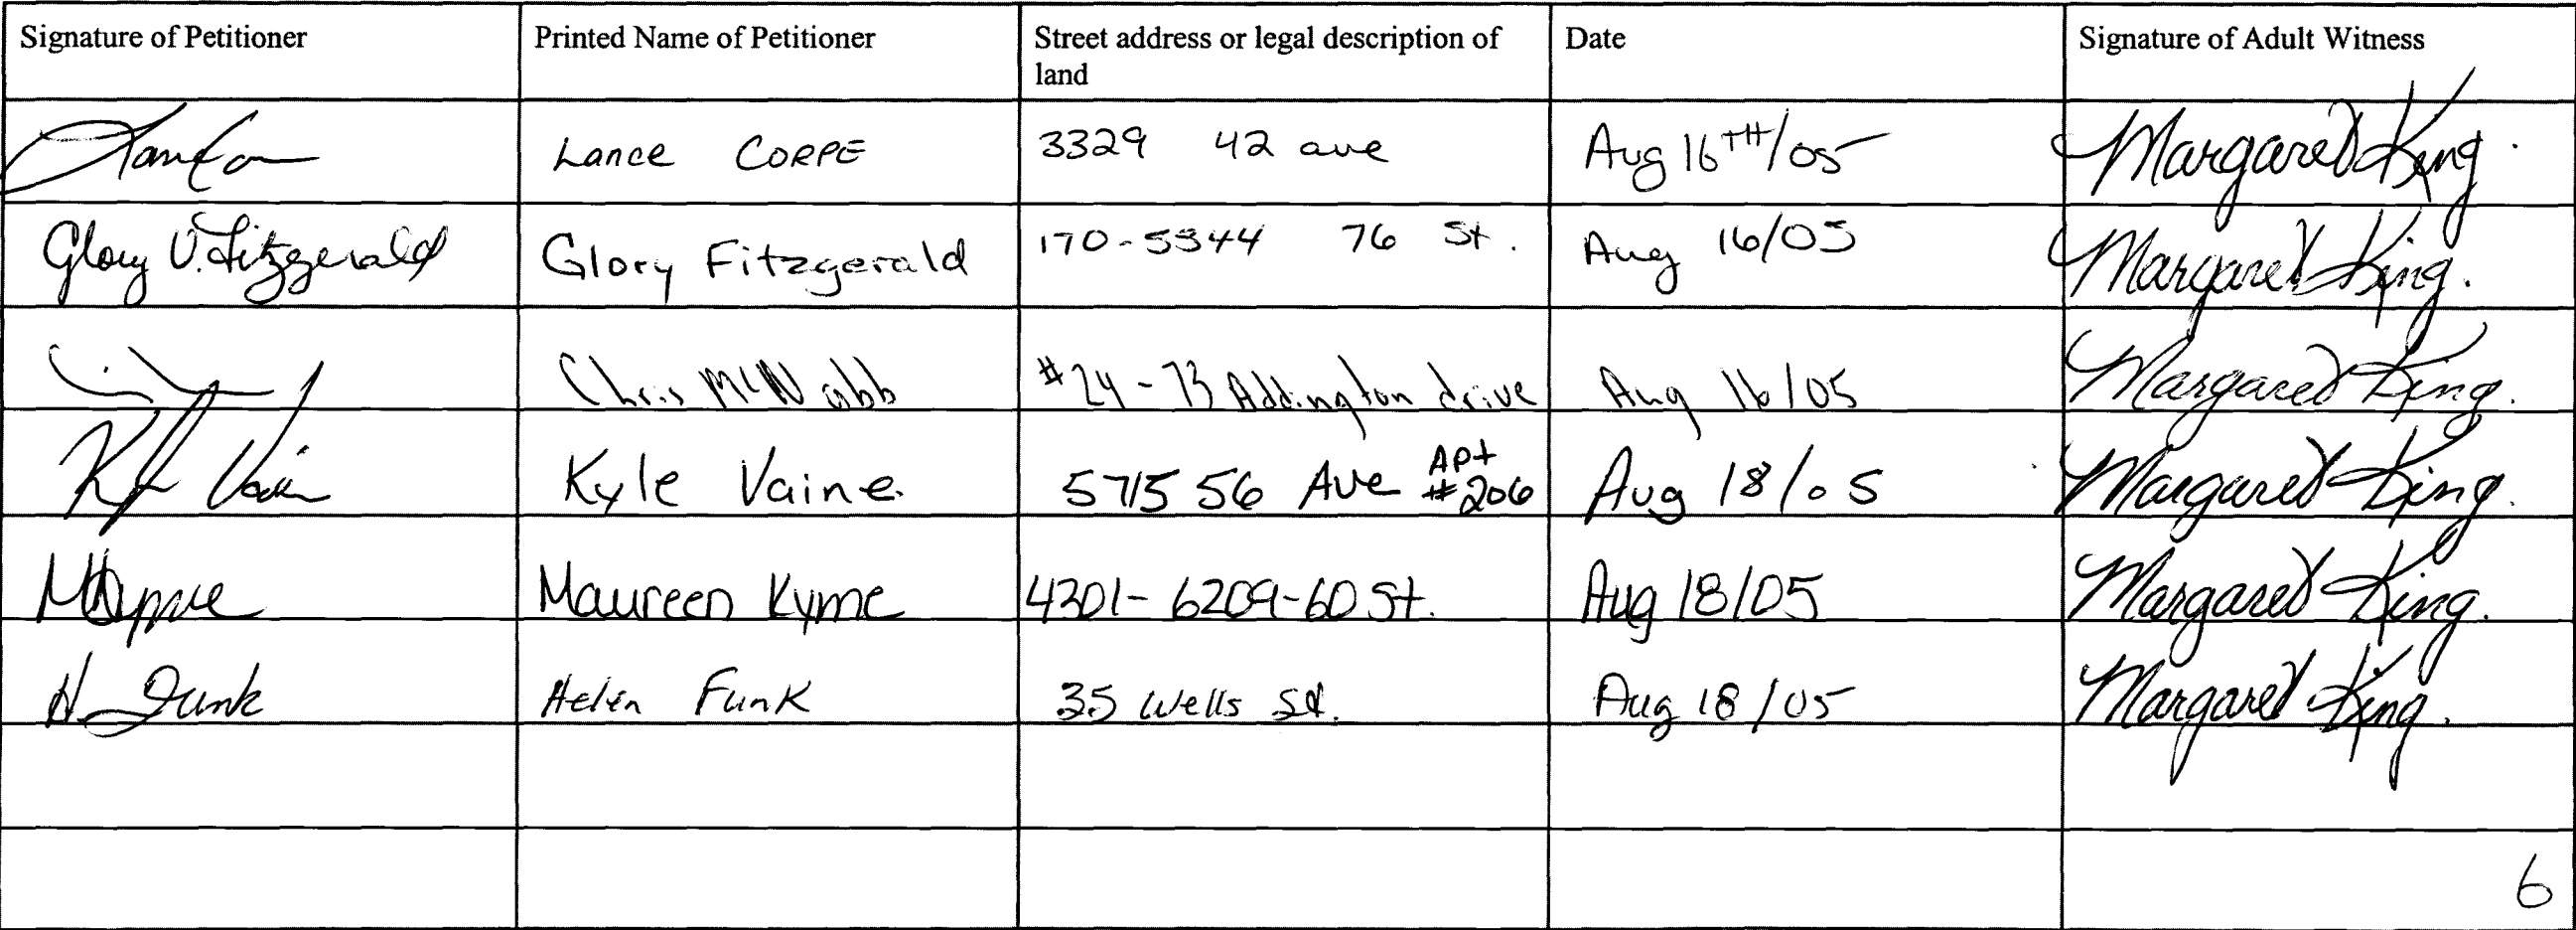 Signature of Petitioner Printed Name of Petitioner Street address or legal description of land Date Signature of Adult Witness
Lance CORPE 3329 42 ave Aug 16TH/05 Margaret King
Glory V. Fitzgerald Glory Fitzgerald 170-5344 76 St. Aug 16/05 Margaret King.
Chris McNabb #24-73 Addington drive Aug 16/05 Margaret King.
Kyle Vaine Kyle Vaine. 5715 56 Ave Apt #206 Aug 18/05 Margaret King.
MKyme Maureen Kyme 4301-6209-60 St. Aug 18/05 Margaret King.
H. Funk Helen Funk 35 Wells St. Aug 18/05 Margaret King.
6